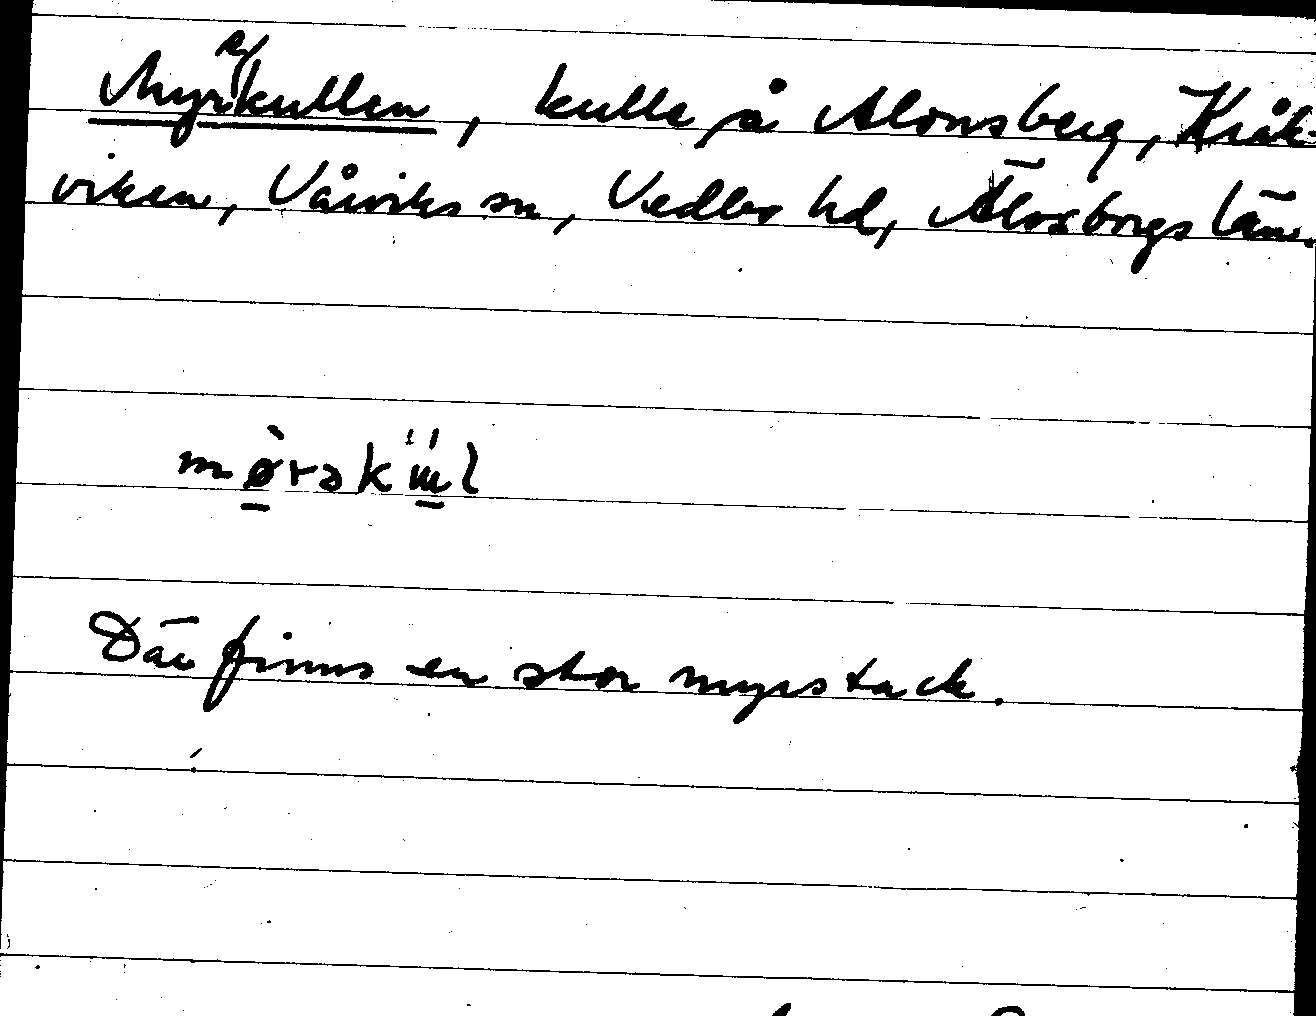 Myrekullen, kulle på Alonsberg, Kråk-
viken, Vårviks sn, Vedbo hd, Älvsborgs län.
mørəkɯl
Där finns en stor myrstack.